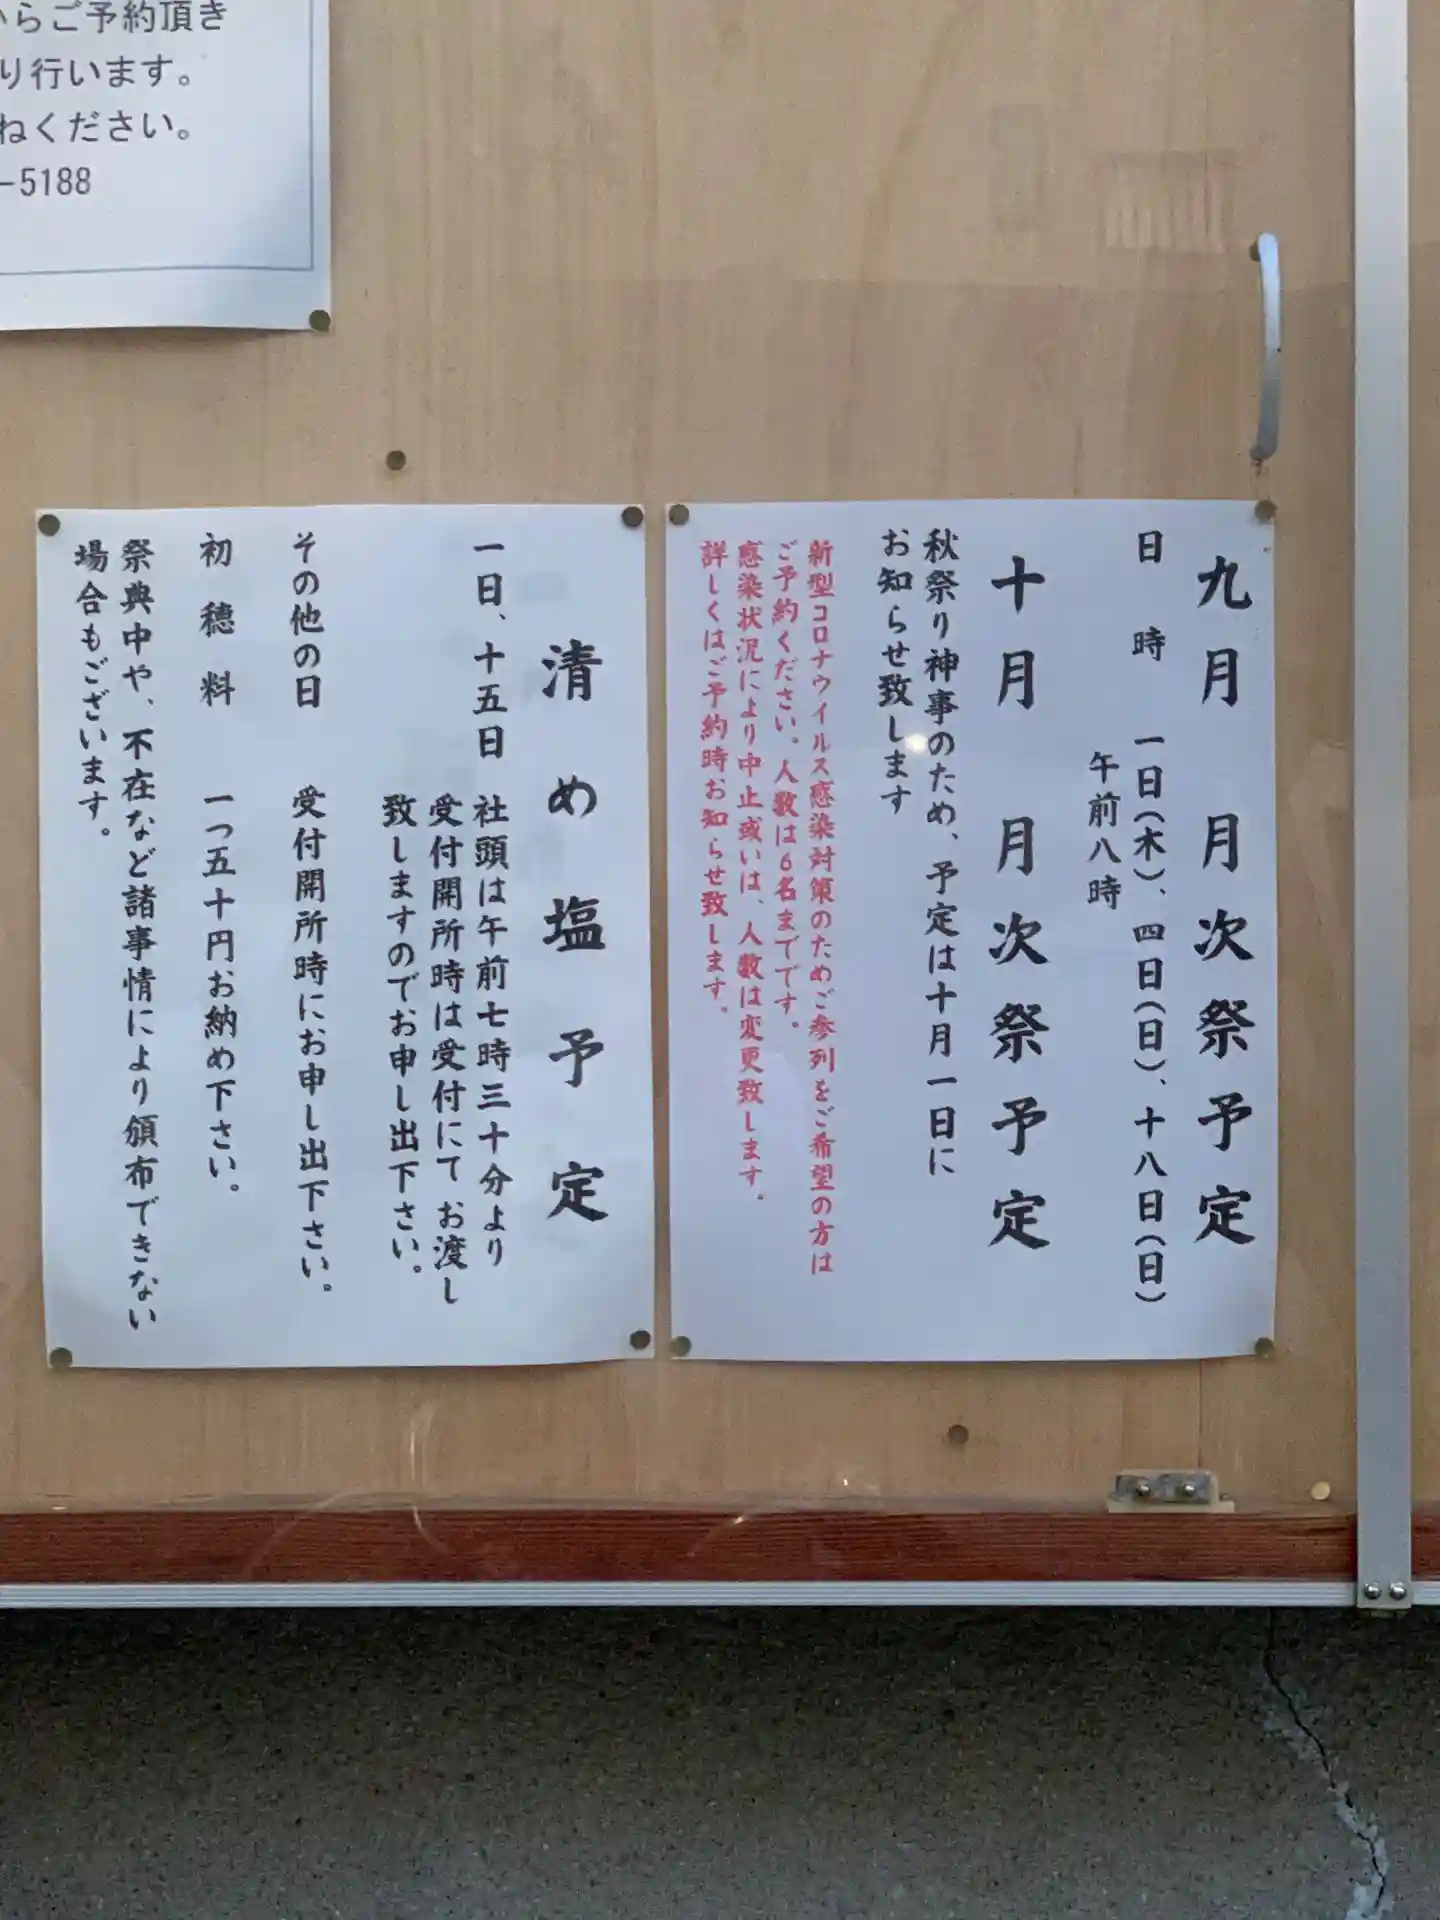 からご予約頂き
り行います。
ねください。
-5188
九月 月次祭予定
日 時 一日(木)、四日(日)、十八日(日)
午前八時
十月 月次祭予定
秋祭り神事のため、予定は十月一日に
お知らせ致します
新型コロナウイルス感染対策のためご参列をご希望の方は
ご予約ください。人数は6名までです。
感染状況により中止或いは、人数は変更致します。
詳しくはご予約時お知らせ致します。
清め塩予定
一日、十五日 社頭は午前七時三十分より
受付開所時は受付にてお渡し
致しますのでお申し出下さい。
その他の日 受付開所時にお申し出下さい。
初穂料 一つ五十円お納め下さい。
祭典中や、不在など諸事情により頒布できない
場合もございます。